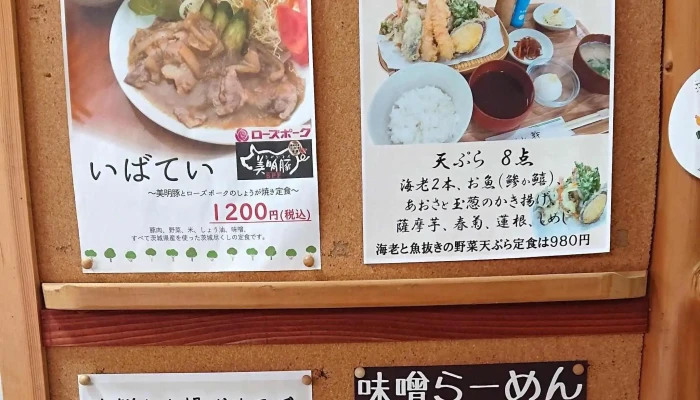 ローズポーク
美明豚
いばてい
～美明豚とローズポークのしょうが焼き定食～
1200円(税込)
豚肉、野菜、米、しょうゆ、味噌、
すべて茨城県産を使った茨城尽くしの定食です。
天ぷら 8点
海老2本、お魚(鯵か鱚)
あおさと玉葱のかき揚げ
薩摩芋、春菊、蓮根、しめじ
海老と魚抜きの野菜天ぷら定食は980円
味噌らーめん